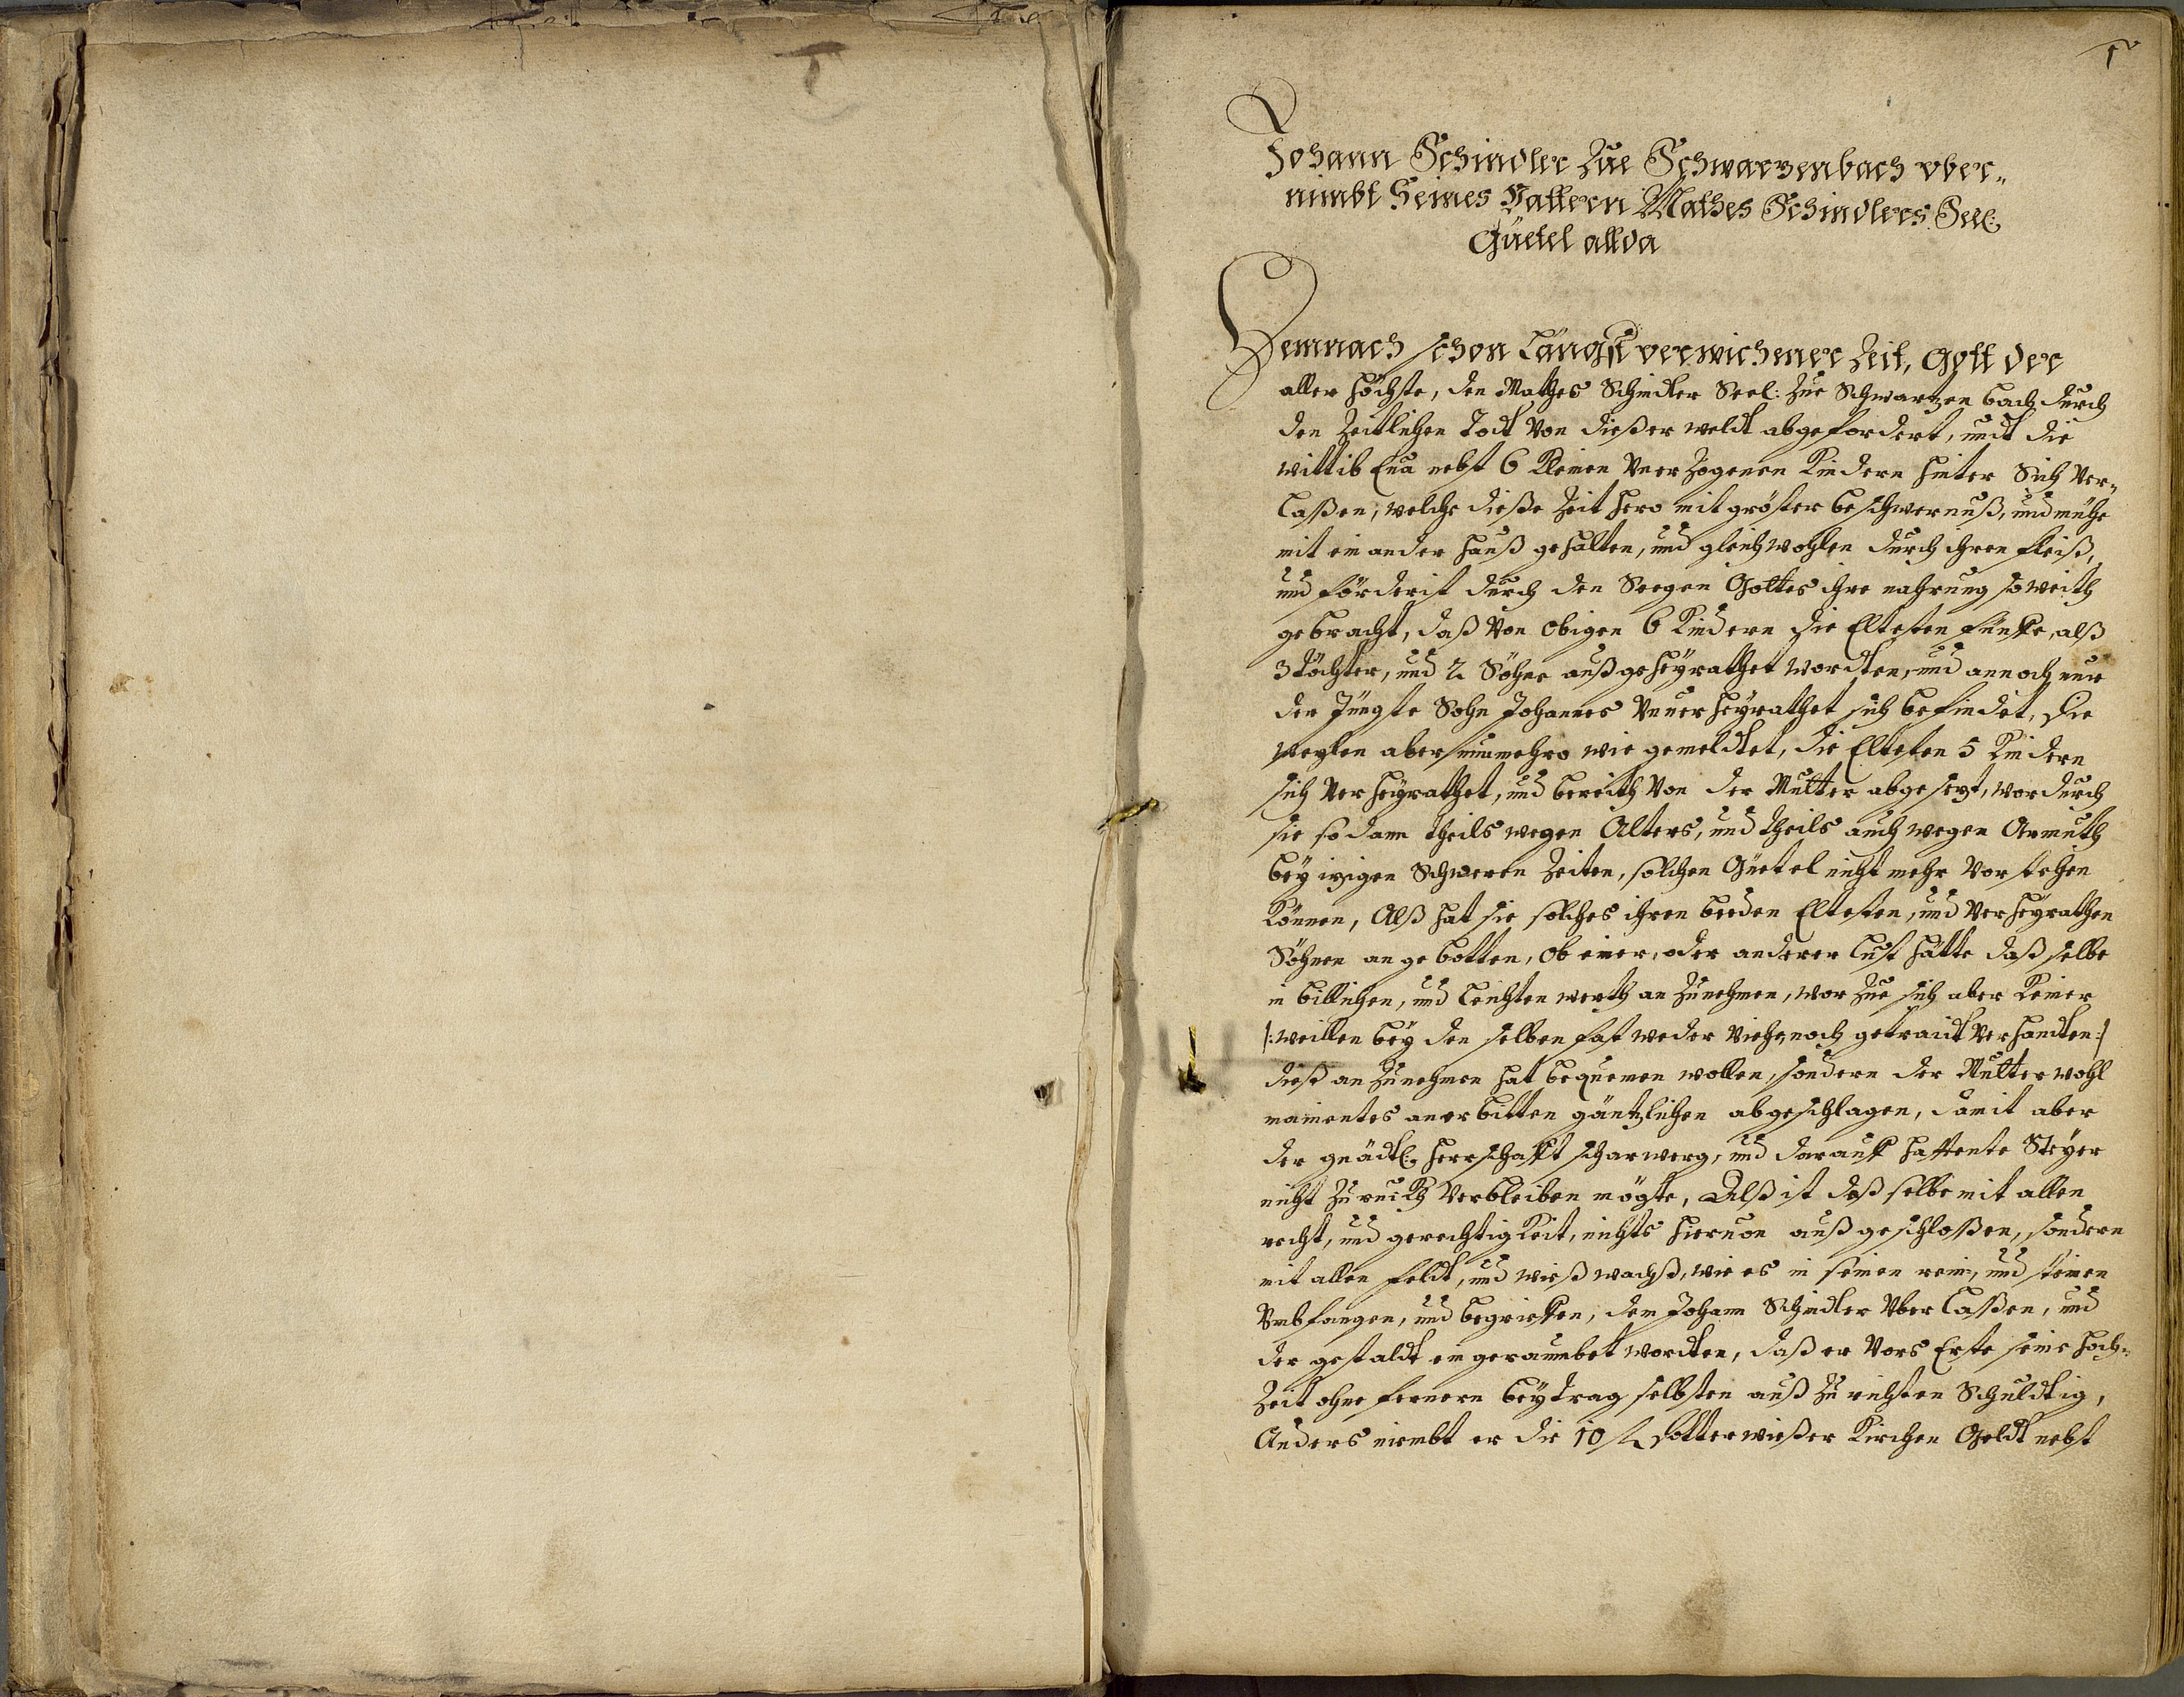 1
Johann Schindler Zue Schwarzenbach vber-
nimbt Seines Vattern Mathes Schindlers Seel:
Güetel allda
Demnach schon Längst verwichener Zeit, Gott der
aller höchste, den Mathes Schindler Seel: Zue Schwartzen bach durch
den Zeitlichen Todt Von dießer weldt abgefordert, undt die
wittib Eua nebst 6 Kleinen Vnerzogenen Kindern hinter Sich Ver-
laßen, welche dieße Zeit hero mit gröster beschwernuß, und mühe
mit ein ander hauß gehalten, und gleichwohlen durch ihren fleiß,
und förderist durch den Seegen Gottes ihre nahrung so weith
gebracht, daß Von obigen 6 Kindern die Eltesten fünffe, alß
3 töchter, und 2 Söhne außgeheyrathet wordten, und annoch nur
der Jüngste Sohn Johannes Vnuerheyrathet sich befindet, die
weylen aber nunmehro wie gemeldtet, die Elteten 5 Kindern
sich Verheyrathet, und bereith Von der Mutter abgesezt, wordurch
sie sodann theils wegen Alters, und theils auch wegen Armuth
bey izigen Schweren Zeiten, solchen Güetel nicht mehr Vorstehen
können, Alß hat sie solches ihren beeden Eltesten, und Verheyrathen
Söhnen angebotten, ob einer, oder anderer lust hätte daßselbe
in billichen, und leichten werth an Zunehmen, wor Zue sich aber Keiner
/: weillen bey den selben fast weder Viehe, noch getraidt Verhandten :/
dieß an Zunehmen hat bequemen wollen, sondern der Mutter wohl
mainentes anerbitten gäntzlichen abgeschlagen, damit aber
der gnädl: herrschafft scharwerg, und darauff hafftente Steyer
nicht Zuruikh Verbleiben mögte, Alß ist daßselbe mit allen
recht, und gerechtigkeit, nichts hieruon außgeschloßen, sondern
mit allen feldt, und wießwachß, wie es in seinen rein, und steinen
Vmbfangen, und begrieffen, dem Johann Schindler Vberlaßen, und
der gestaldt eingeraumbet wordten, daß er Vors Erste seine hoch-
Zeit ohne fernern beytrag selbsten auß Zu richten Schuldtig,
Anders nimbt er die 10 fl Votterwießer Kirchen Geldt nebst